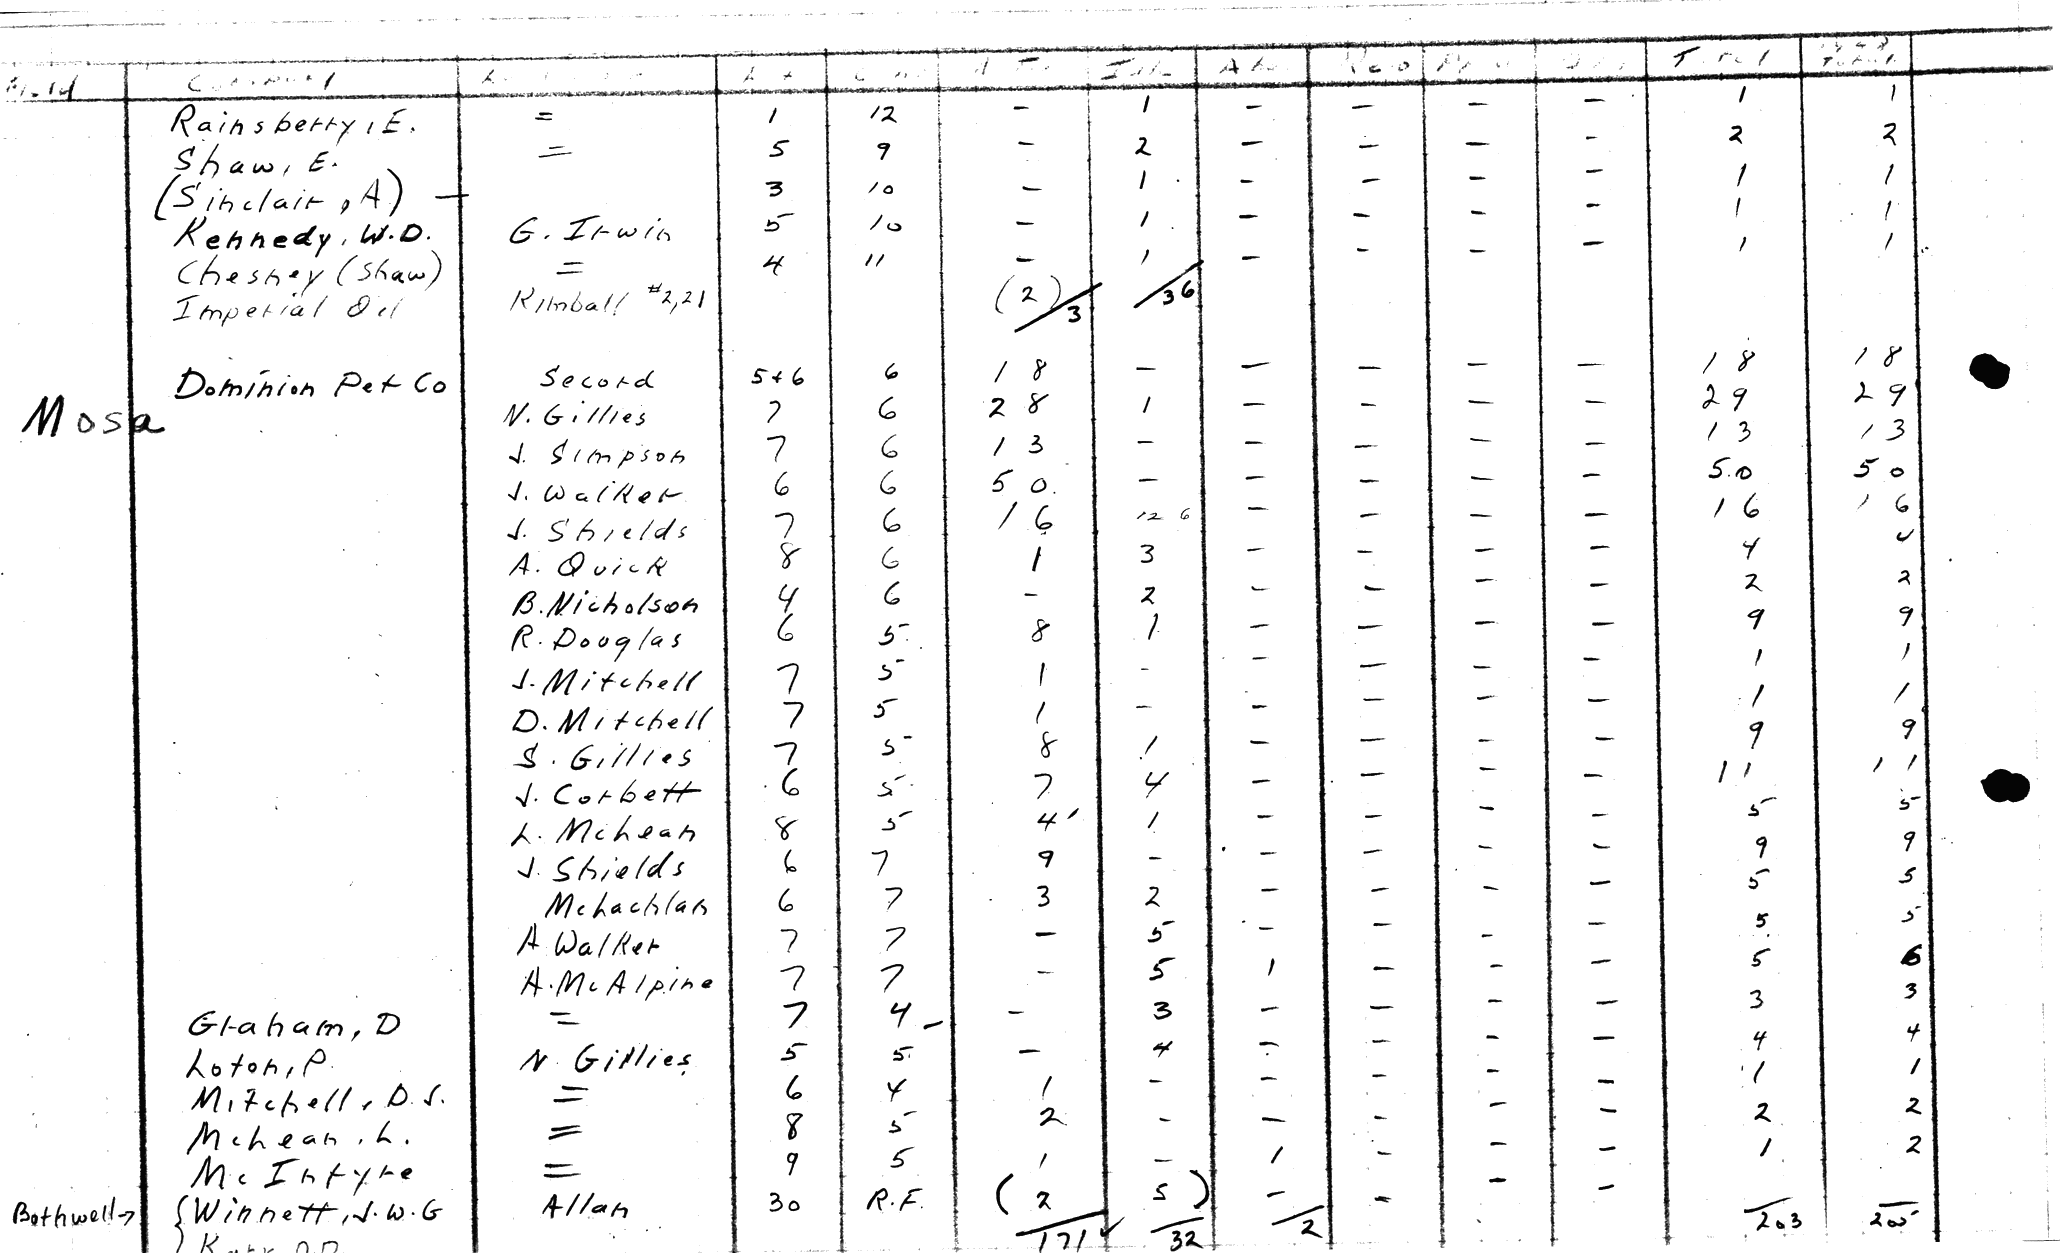 Field Company Lot Con Act Idle Aba Total Total
Rainsberry, E. = 1 12 - 1 - - - - 1 1
Shaw, E. = 5 9 - 2 - - - - 2 2
(Sinclair, A) - 3 10 - 1 - - - - 1 1
Kennedy, W.D. G. Irwin 5 10 - 1 - - - - 1 1
Chesney (Shaw) = 4 11 - 1 - - - - 1 1
Imperial Oil Kimball #2,21 (2) 3 36
Dominion Pet Co Secord 5+6 6 18 - - - - - 18 18
Mosa N. Gillies 7 6 28 1 - - - - 29 29
J. Simpson 7 6 13 - - - - - 13 13
J. Walker 6 6 50 - - - - - 50 50
J. Shields 7 6 16 126 - - - - 16 16
A. Quick 8 6 1 3 - - - - 4 4
B. Nicholson 4 6 - 2 - - - - 2 2
R. Douglas 6 5 8 1 - - - - 9 9
J. Mitchell 7 5 1 - - - - - 1 1
D. Mitchell 7 5 1 - - - - - 1 1
S. Gillies 7 5 8 1 - - - - 9 9
J. Corbett 6 5 7 4 - - - - 11 11
L. McLean 8 5 4 1 - - - - 5 5
J. Shields 6 7 9 - - - - - 9 9
McLachlan 6 7 3 2 - - - - 5 5
A Walker 7 7 - 5 - - - - 5 5
A. McAlpine 7 7 - 5 1 - - - 5 6
Graham, D = 7 4 - 3 - - - - 3 3
Loton, P. N. Gillies 5 5 - 4 - - - - 4 4
Mitchell, D.J. = 6 4 1 - - - - - 1 1
McLean, L. = 8 5 2 - - - - - 2 2
McIntyre = 9 5 1 - 1 - - - 1 2
Bothwell→ {Winnett, J.W.G Allan 30 R.F. (2 5) - - - -
171 ✓ 32 2 203 205